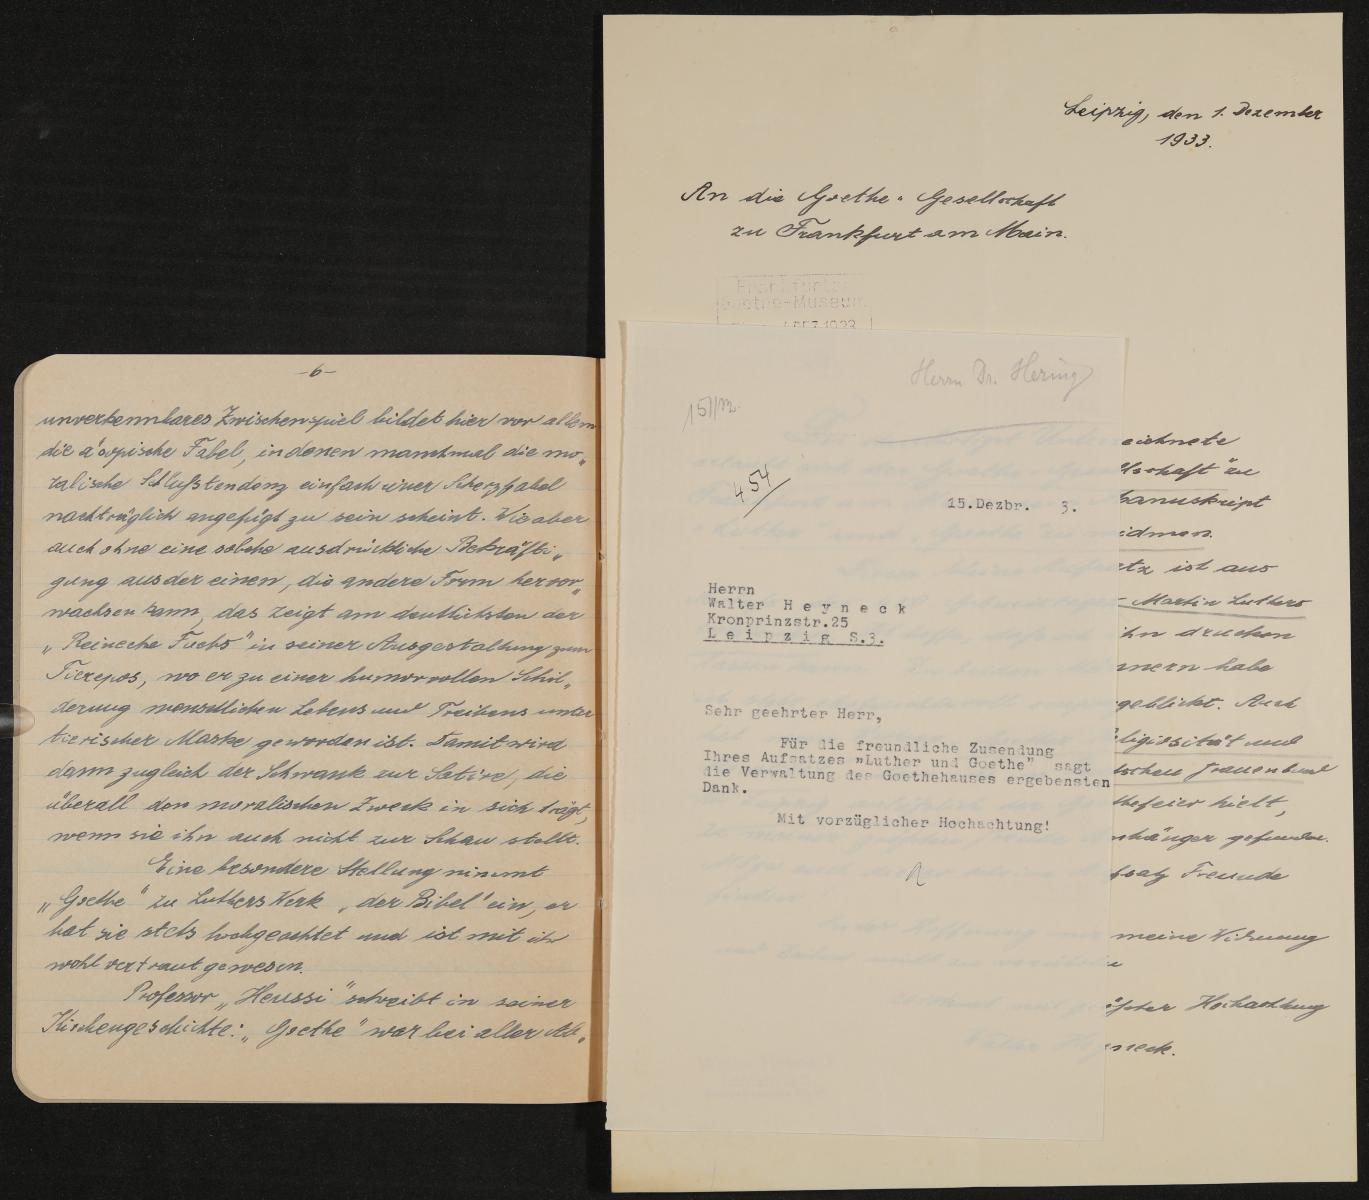 -6-
unverkennbares Zwischenspiel bildet hier vor allem
die äsopische Fabel, in denen manchmal die mo„
ralische Schlußtendenz einfach einer Scherzfabel
nachträglich angefügt zu sein scheint. Wie aber
auch ohne eine solche ausdrückliche Bekräfti„
gung aus der einen, die andere Form hervor„
wachsen kann, das zeigt am deutlichsten der
„Reineche Fuchs" in seiner Ausgestaltung zum
Tierepos, wo er zu einer humorvollen Schil„
derung menschlichen Lebens und Treibens unter
tierischer Maske geworden ist. Damit wird
dann zugleich der Schwank zur Satire, die
überall den moralischen Zweck in sich trägt,
wenn sie ihn auch nicht zur Schau stellt.
Eine besondere Stellung nimmt
„Goethe" zu Luthers Werk „der Bibel" ein, er
hat sie stets hochgeachtet und ist mit ihr
wohl vertraut gewesen.
Professor „Heussi" schreibt in seiner
Kirchengeschichte: „Goethe" war bei aller Ab„
Leipzig, den 1. Dezember
1933.
An die Goethe-Gesellschaft
zu Frankfurt am Main.
Frankfurter
Goethe-Museum
Herrn Dr. Hering
454
15.Dezbr. 3.
Herrn
Walter Heyneck
Kronprinzstr.25
Leipzig S.3.
Sehr geehrter Herr,
Für die freundliche Zusendung
Ihres Aufsatzes "Luther und Goethe" sagt
die Verwaltung des Goethehauses ergebensten
Dank.
Mit vorzüglicher Hochachtung!
eichnete
llschaft" zu
Manuskript
widmen.
tz ist aus
Martin Luthers
ihn drucken
nnern habe
geblickt. Auch
eligiosität und
tschen Frauenbund
thefeier hielt,
nhänger gefunden.
fsatz Freunde
meine Widmung
ößter Hochachtung
neck.